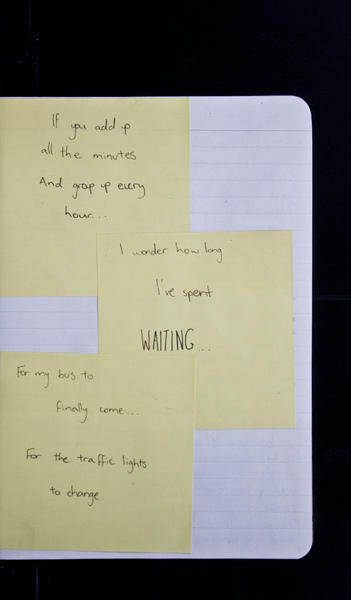 If you add up
all the minutes
And group up every
hour...
I wonder how long
I've spent
WAITING...
For my bus to
finally come...
For the traffic lights
to change.